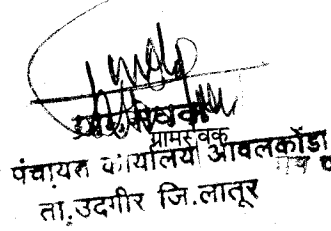 ग्रामसेवक
पंचायत कार्यालय आवलकोंडा
ता.उदगीर जि.लातूर